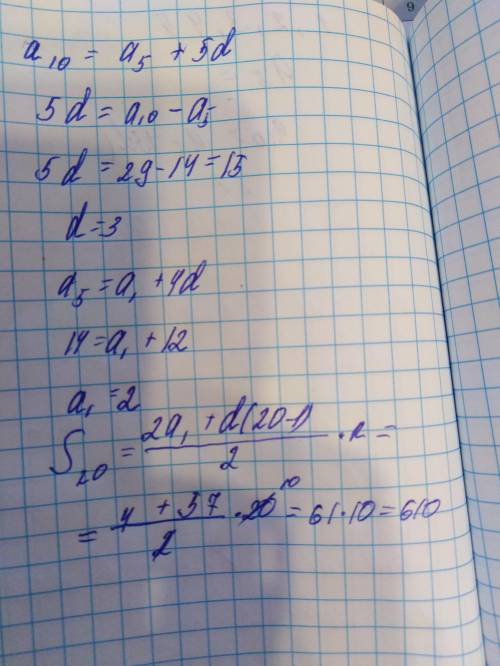 9
a₁₀ = a₅ + 5d
5d = a₁₀ - a₅
5d = 29 - 14 = 15
d = 3
a₅ = a₁ + 4d
14 = a₁ + 12
a₁ = 2
S₂₀ = (2a₁ + d(20-1))/2 · n =
= (4 + 57)/2 · 20 10 = 61 · 10 = 610